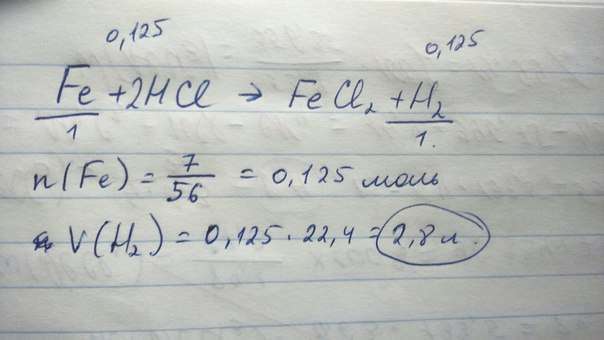 0,125 0,125
Fe + 2HCl → FeCl₂ + H₂
1 1.
n(Fe) = 7/56 = 0,125 моль
V(H₂) = 0,125 · 22,4 = 2,8 л.